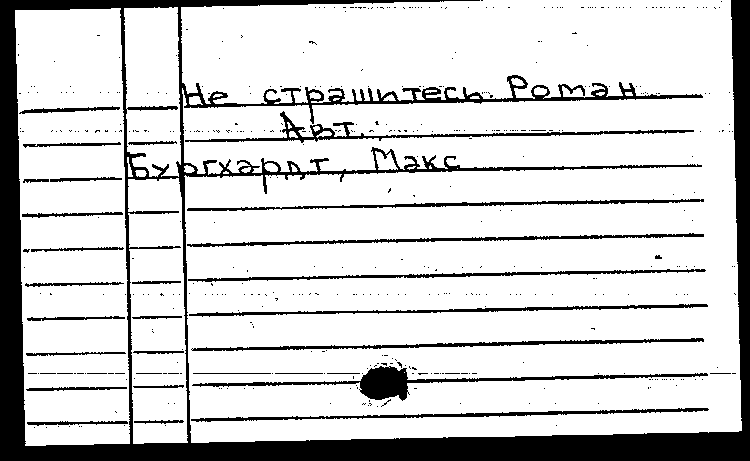 Не страшитесь. Роман
Авт.:
Бургхардт, Макс